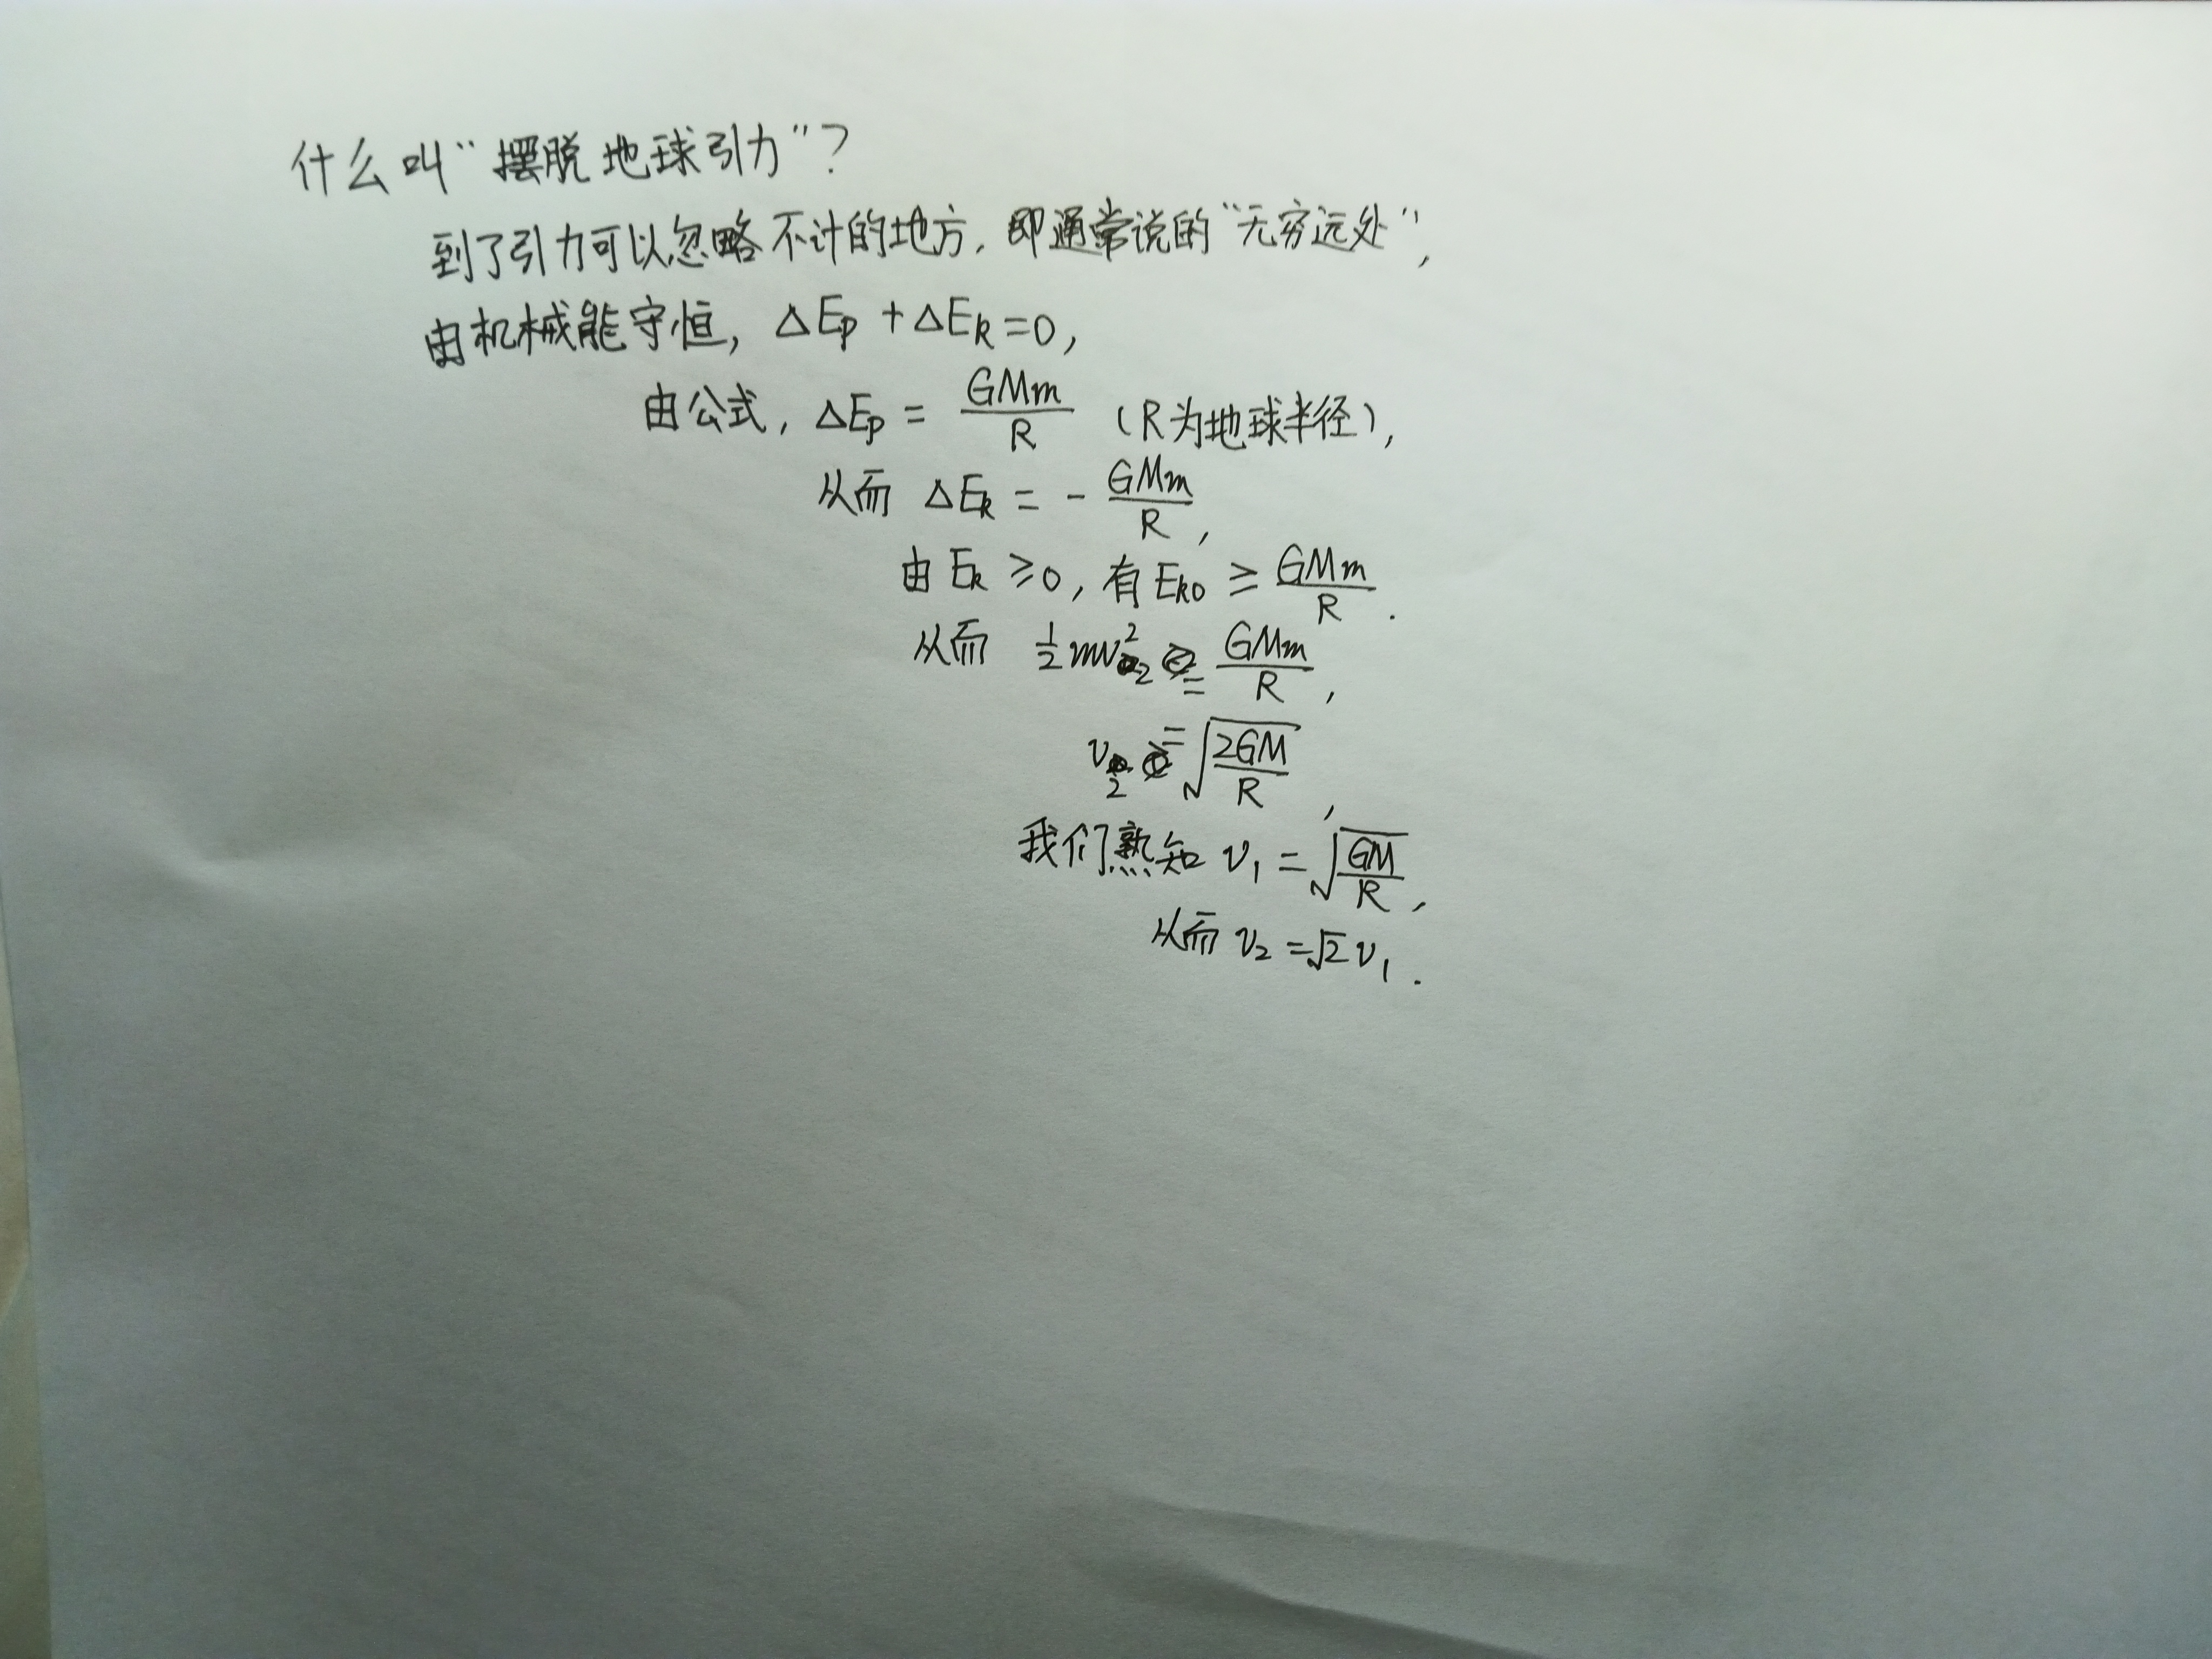 什么叫“摆脱地球引力”?
到了引力可以忽略不计的地方,即通常说的“无穷远处”,
由机械能守恒, ΔEp + ΔEk = 0,
由公式, ΔEp = GMm/R (R为地球半径),
从而 ΔEk = - GMm/R,
由 Ek ≥ 0, 有 Ek0 ≥ GMm/R.
从而 1/2 mv₂² = GMm/R,
v₂ = √(2GM/R),
我们熟知 v₁ = √(GM/R),
从而 v₂ = √2 v₁.